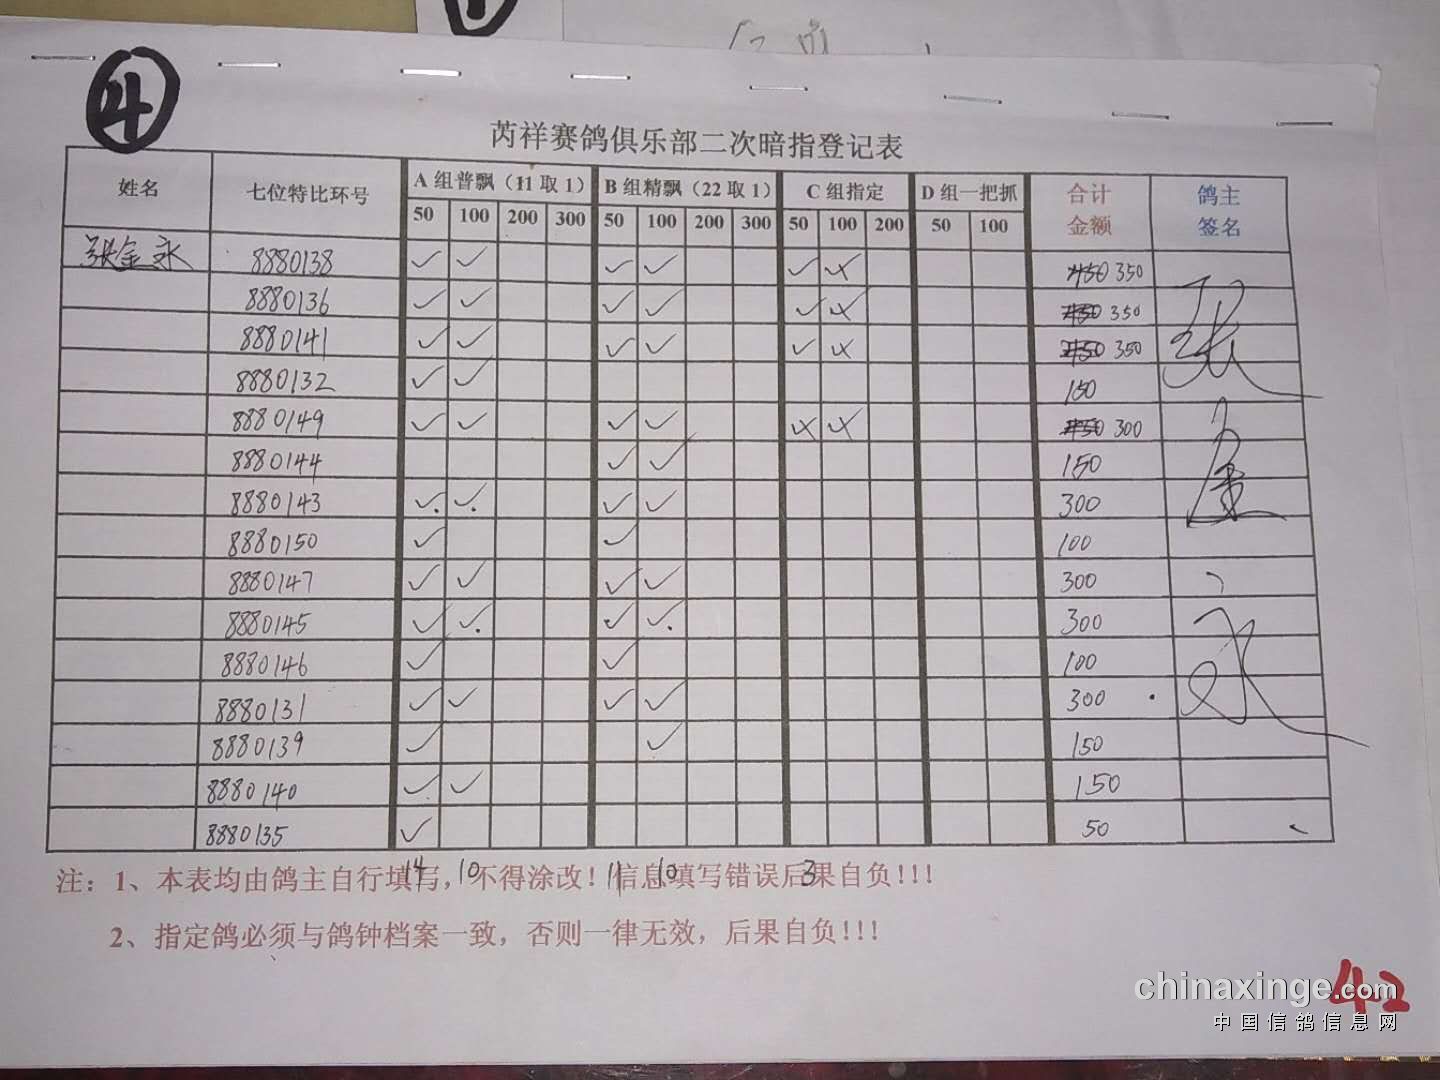 ④
芮祥赛鸽俱乐部二次暗指登记表
姓名 七位特比环号 A 组普飘（11 取 1） B 组精飘（22 取 1） C 组指定 D 组一把抓 合计金额 鸽主签名
50 100 200 300 50 100 200 300 50 100 200 50 100
张金永 8880138 ✓ ✓ ✓ ✓ ✓ 350
8880136 ✓ ✓ ✓ ✓ ✓ 350
8880141 ✓ ✓ ✓ ✓ ✓ 350
8880132 ✓ ✓ 150
8880149 ✓ ✓ ✓ ✓ 300
8880144 ✓ ✓ 150
8880143 ✓ ✓ ✓ ✓ 300
8880150 ✓ ✓ 100
8880147 ✓ ✓ ✓ ✓ 300
8880145 ✓ ✓ ✓ ✓ 300
8880146 ✓ ✓ 100
8880131 ✓ ✓ ✓ ✓ 300
8880139 ✓ ✓ 150
8880140 ✓ ✓ 150
8880135 ✓ 50
14 10 11 10 3
注：1、本表均由鸽主自行填写，不得涂改！信息填写错误后果自负!!!
2、指定鸽必须与鸽钟档案一致，否则一律无效，后果自负!!!
42
chinaxinge.com
中国信鸽信息网